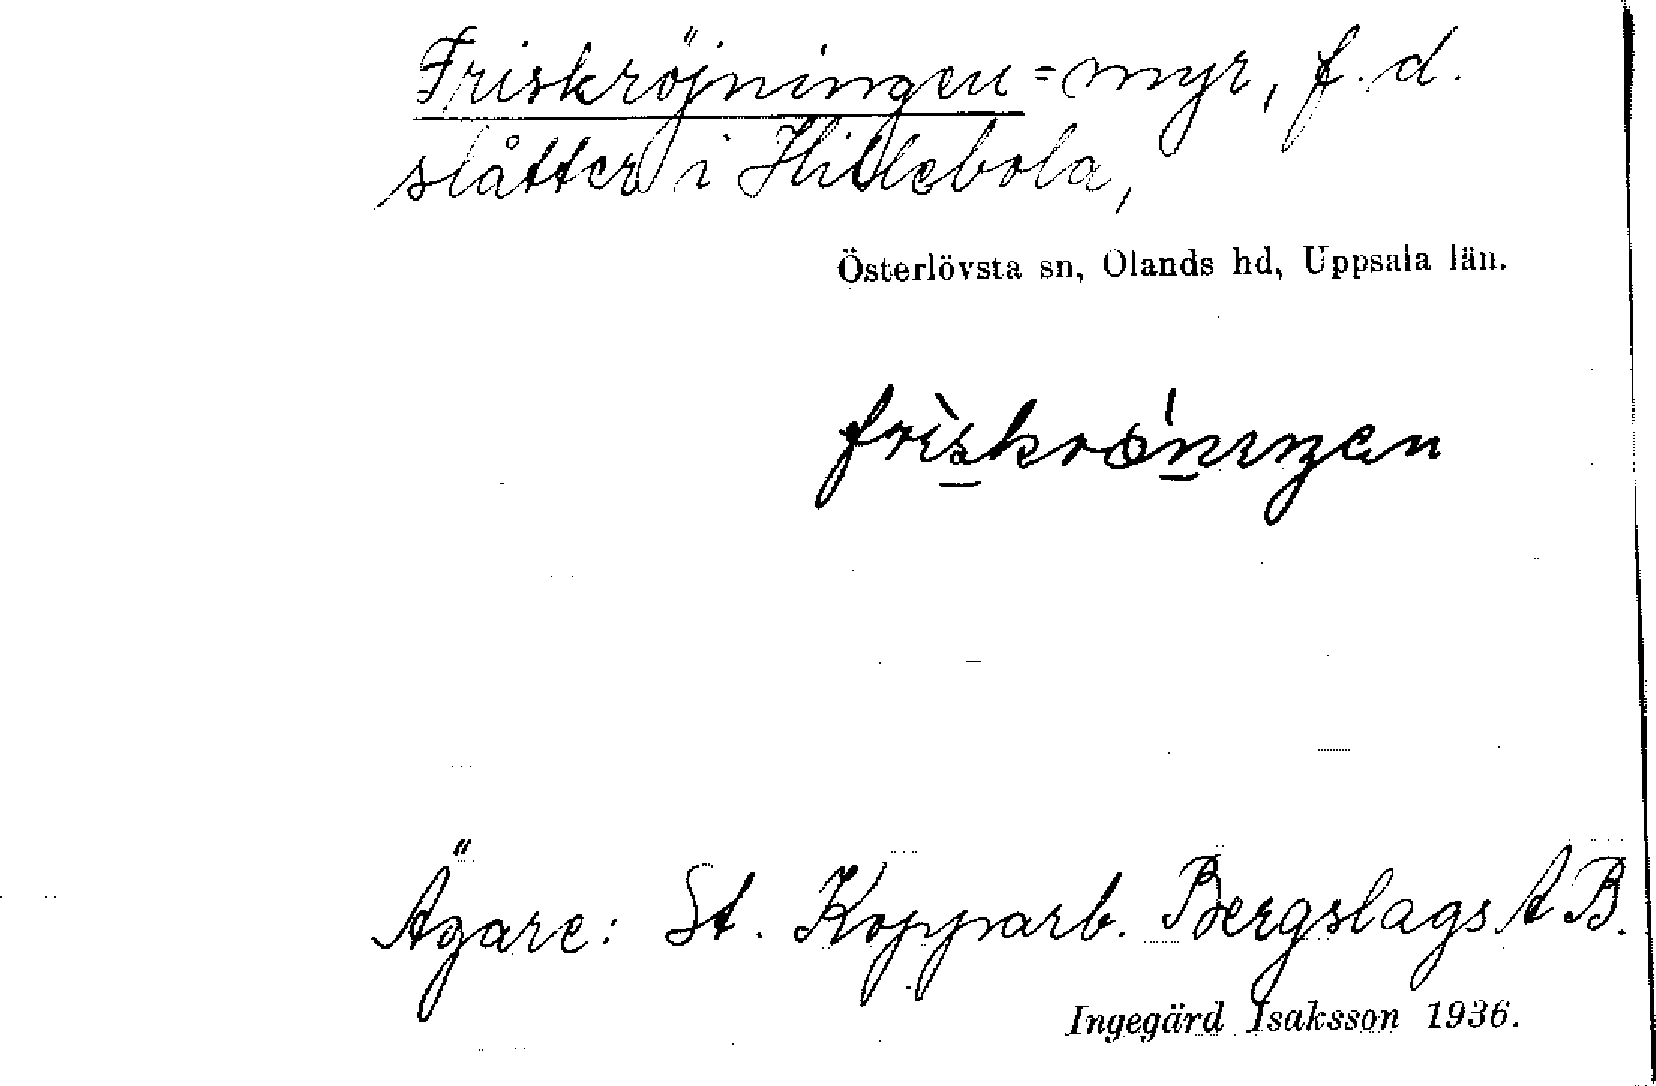 Friskröjningen = myr, f. d.
slåtter i Hillebola,
Österlövsta sn, Olands hd, Uppsala län.
Ägare: St. Kopparb. Bergslags A B.
Ingegärd Isaksson 1936.